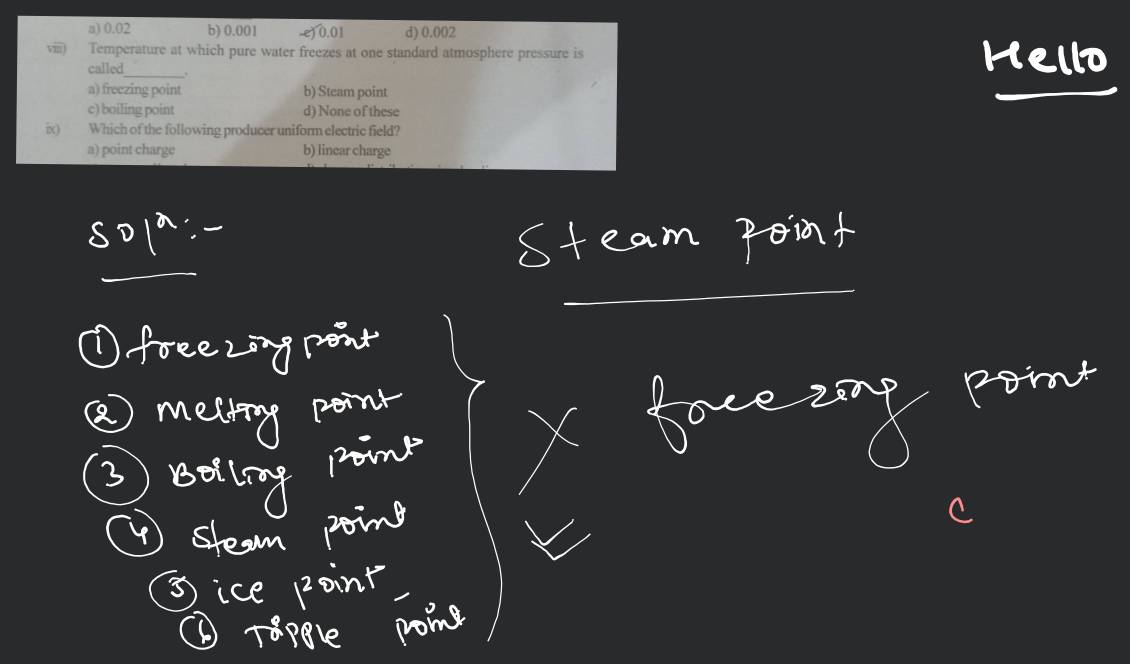 a) 0.02 b) 0.001 c) 0.01 d) 0.002
viii) Temperature at which pure water freezes at one standard atmosphere pressure is
called________.
a) freezing point b) Steam point
c) boiling point d) None of these
ix) Which of the following producer uniform electric field?
a) point charge b) linear charge
Hello
Solⁿ:-
Steam point
① freezing point
② Melting point
③ Boiling point
④ Steam point
⑤ ice point
⑥ Tripple point
freezing point